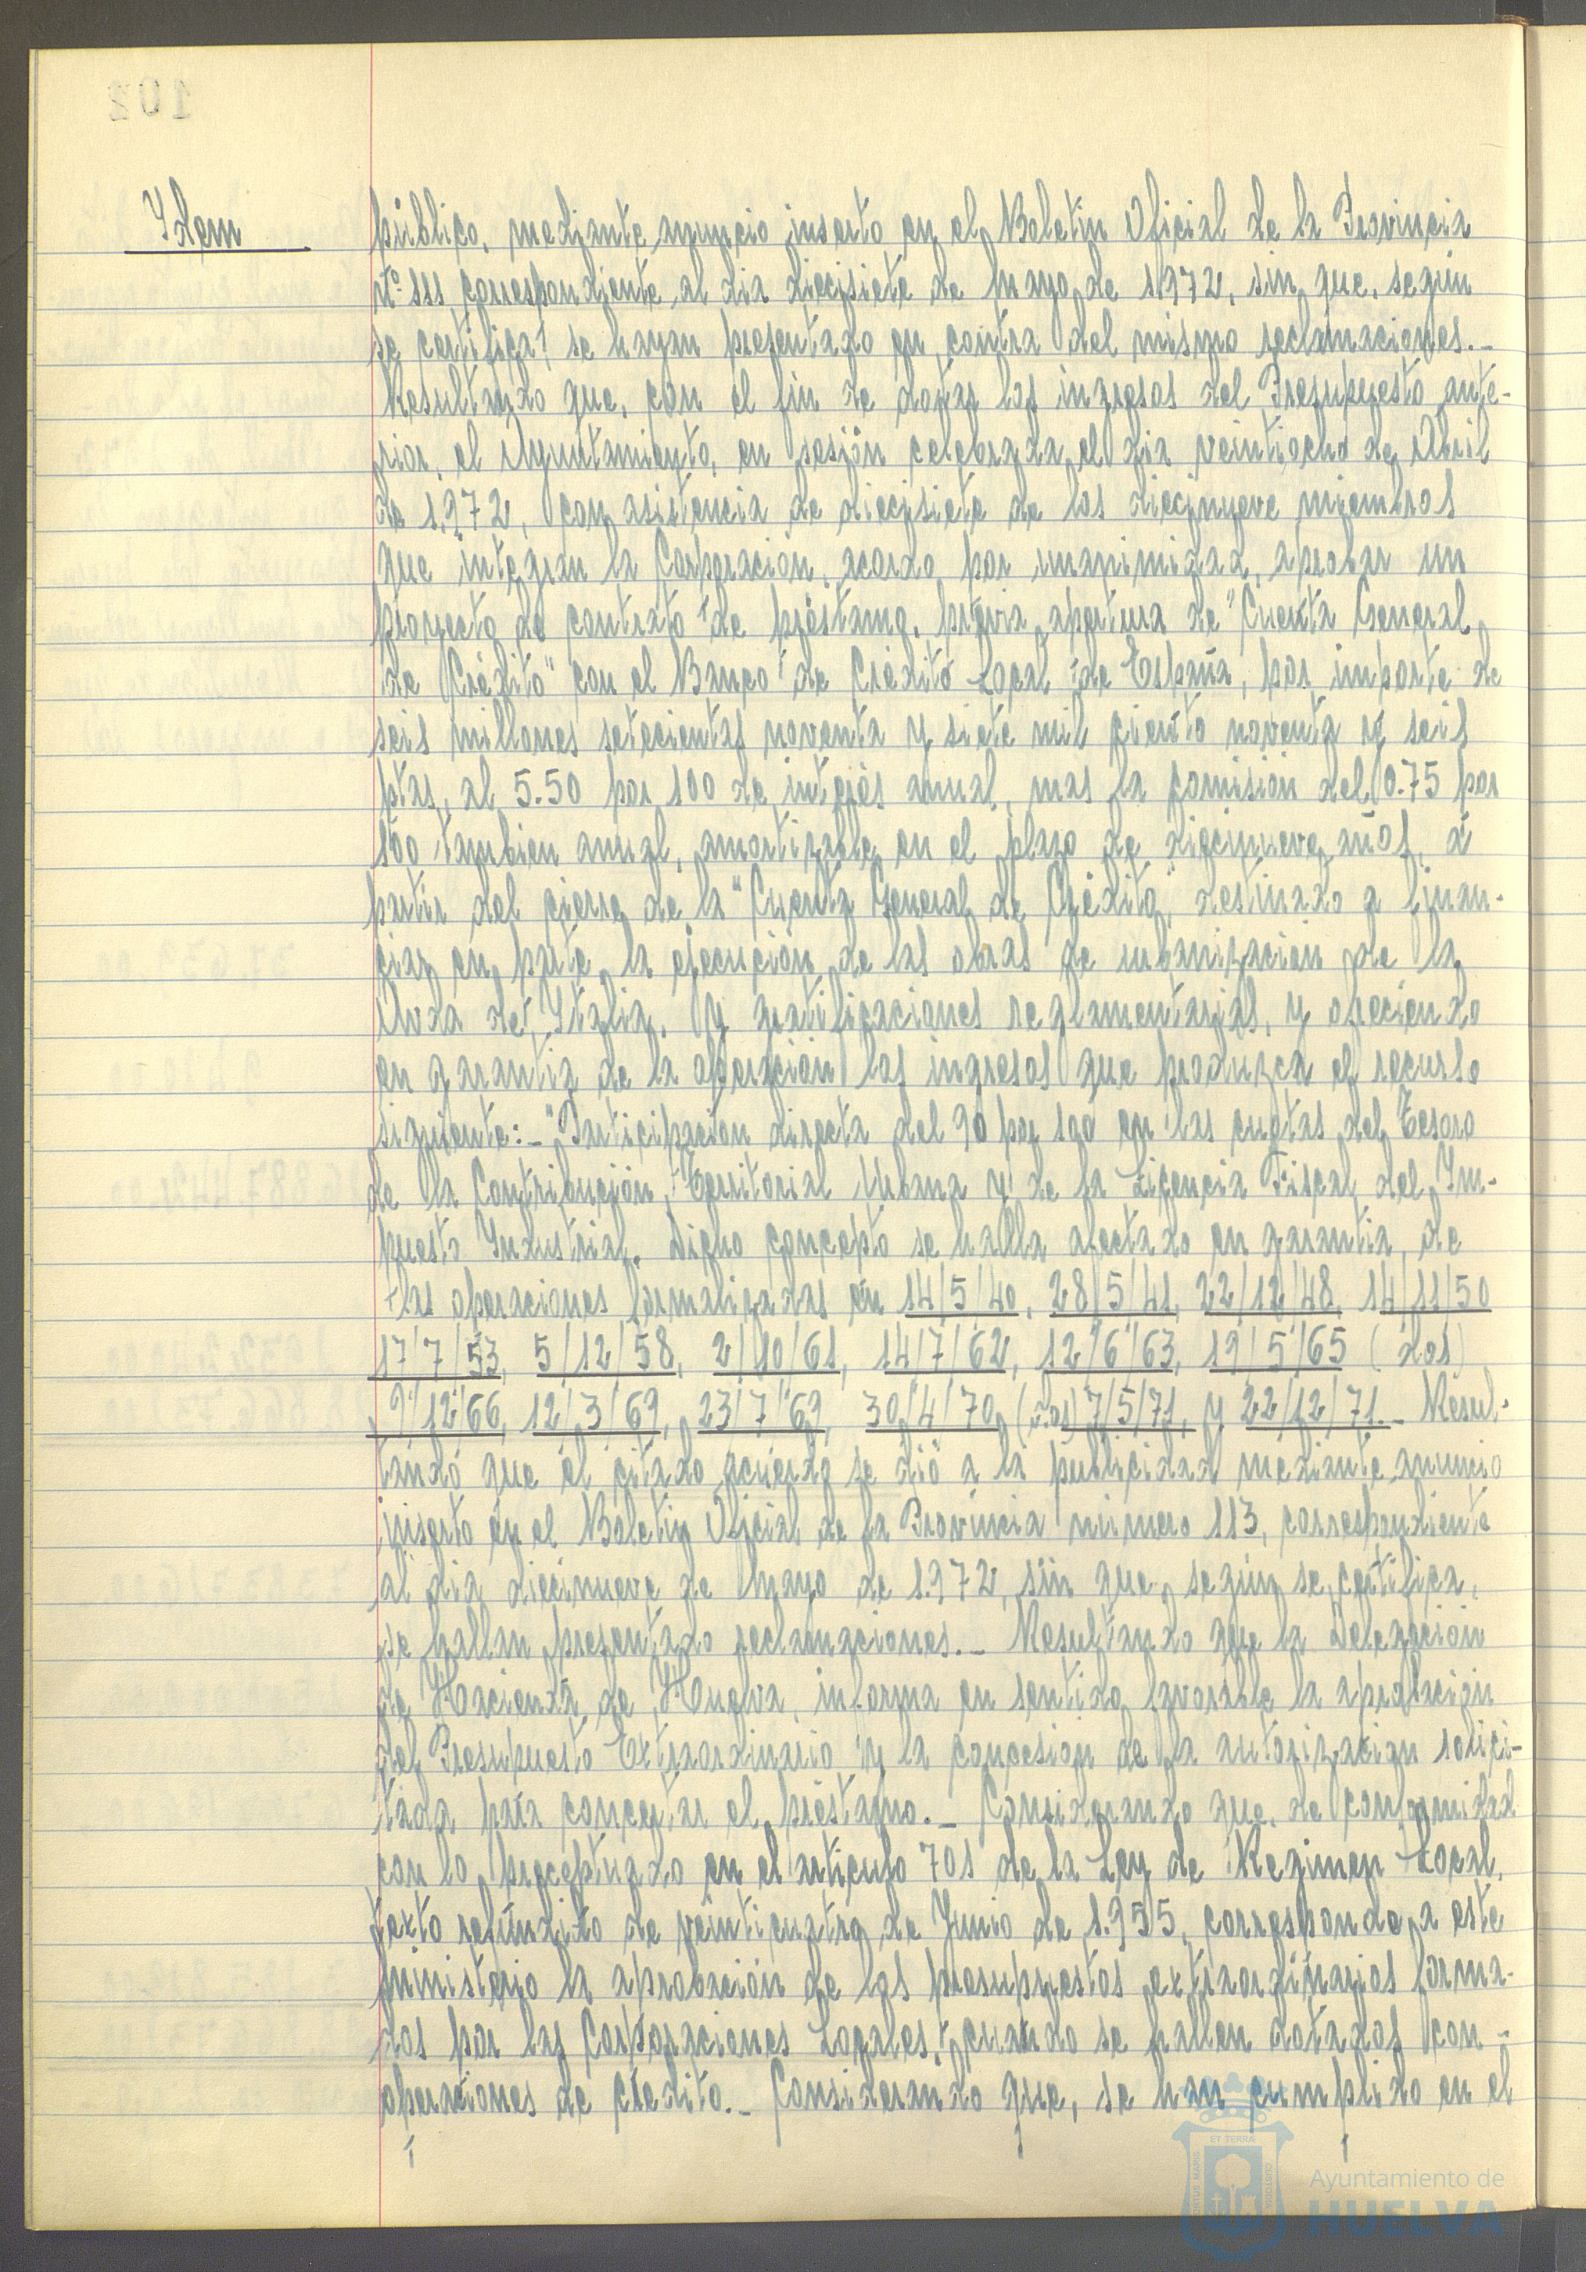 Ydem
público, mediante anuncio inserto en el Boletin Oficial de la Provincia
nº 111 correspondiente al dia diecisiete de Mayo de 1972, sin que, según
se certifica, se hayan presentado en contra del mismo reclamaciones.-
Resultando que, con el fin de dotar los ingresos del Presupuesto ante-
rior, el Ayuntamiento, en sesión celebrada el dia veintiocho de Abril
de 1.972, con asistencia de diecisiete de los diecinueve miembros
que integran la Corporación, acordó por unanimidad, aprobar un
proyecto de contrato de préstamo, previa apertura de "Cuenta General
de Crédito" con el Banco de Crédito Local de España, por importe de
seis millones setecientas noventa y siete mil ciento noventa y seis
ptas, al 5.50 por 100 de interés anual, mas la comisión del 0.75 por
100 tambien anual, amortizable en el plazo de diecinueve años, a
partir del cierre de la "Cuenta General de Crédito", destinado a finan-
ciar en parte la ejecución de las obras de urbanización de la
Avda de Ytalia, y gratificaciones reglamentarias, y ofreciendo
en garantia de la operación los ingresos que produzca el recurso
siguiente:- "Participación directa del 90 por 100 en las cuotas del Tesoro
de la Contribución Territorial Urbana y de la Licencia Fiscal del Ym-
puesto Yndustrial. Dicho concepto se halla afectado en garantia de
las operaciones formalizadas en 14/5/40, 28/5/41, 22/12/48, 14/11/50
17/7/53, 5/12/58, 2/10/61, 14/7/62, 12/6/63, 19/5/65 (dos)
9/12/66, 12/3/69, 23/7/69, 30/4/70 (dos) 7/5/71, y 22/12/71.- Resul-
tando que el citado acuerdo se dió a la publicidad mediante anuncio
inserto en el Boletin Oficial de la Provincia número 113, correspondiente
al dia diecinueve de Mayo de 1.972, sin que, según se certifica,
se hallan presentado reclamaciones.- Resultando que la Delegación
de Hacienda de Huelva, informa en sentido favorable la aprobación
del Presupuesto Extraordinario y la concesión de la autorización solici-
tada para concertar el préstamo.- Considerando que, de conformidad
con lo preceptuado en el articulo 701 de la Ley de Regimen Local,
texto refundido de veinticuatro de Junio de 1.955, corresponde a este
Ministerio la aprobación de los presupuestos extraordinarios forma-
dos por las Corporaciones Locales, cuando se hallen dotados con
operaciones de crédito.- Considerando que, se han cumplido en el
Ayuntamiento de
HUELVA